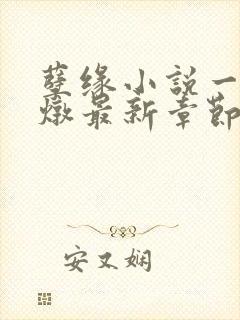 孽缘小説一
燉最新章節
安又娴